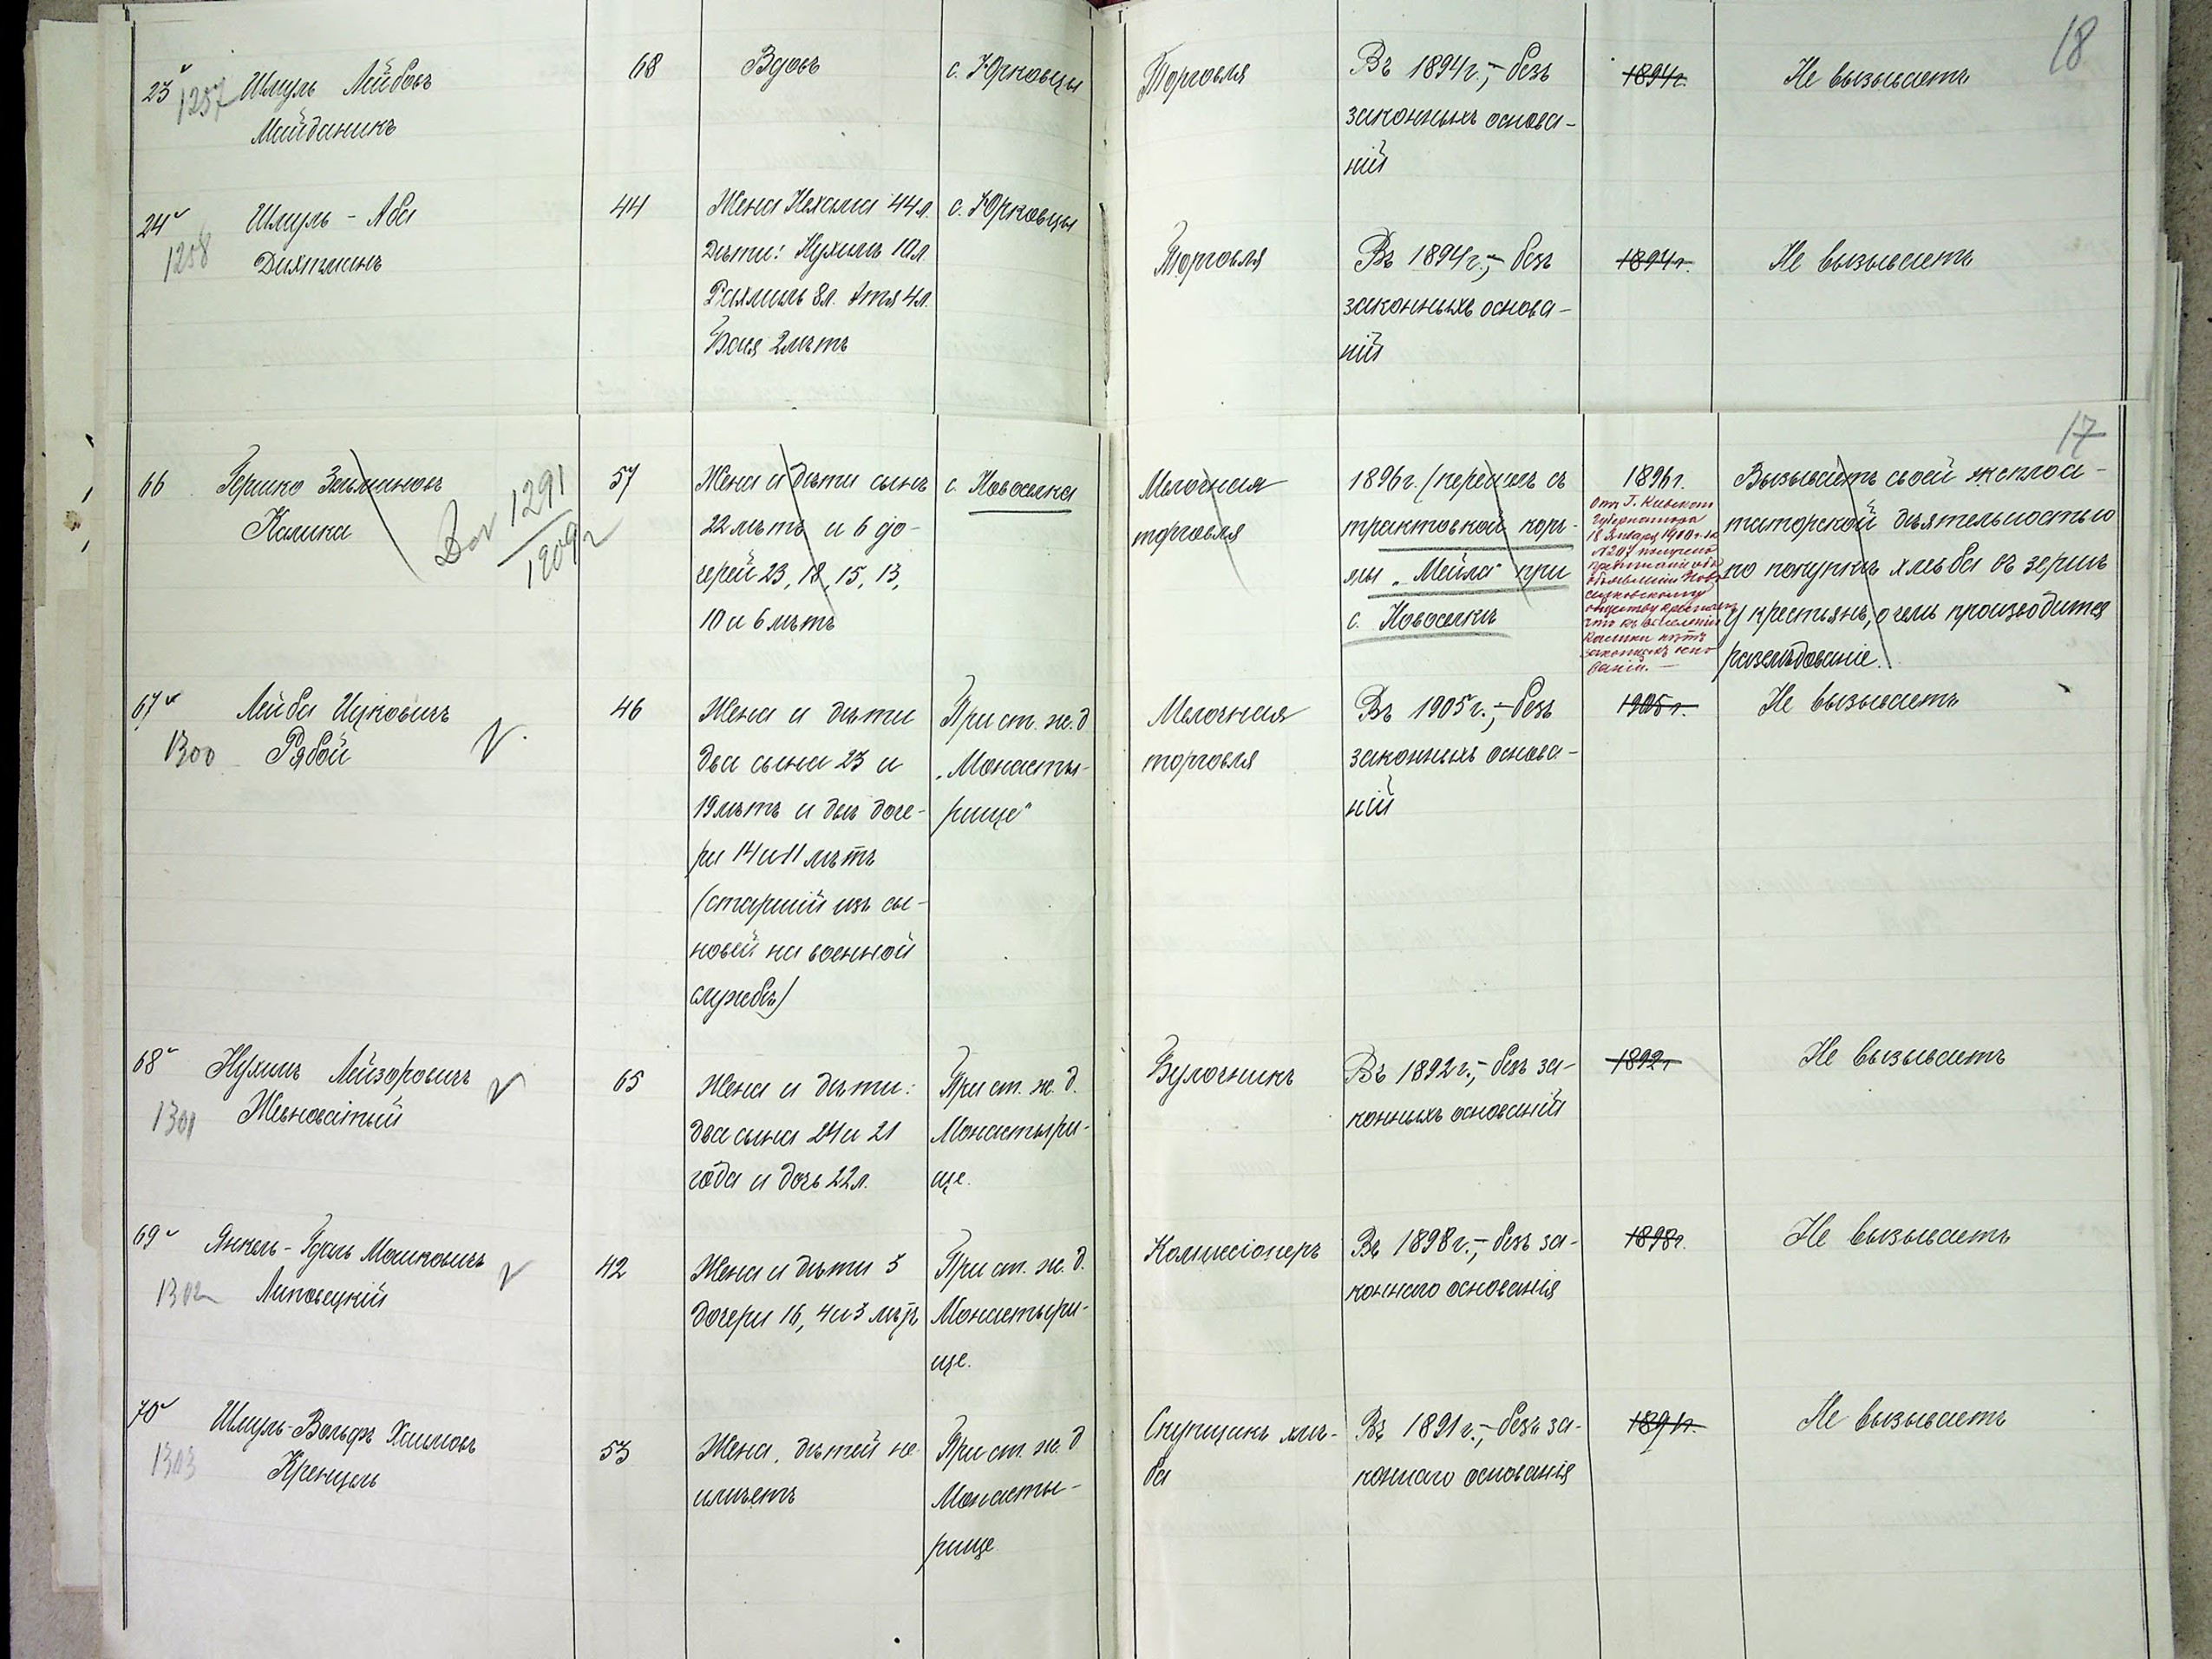 18
23 1257 Шмуль Лейбовъ
Майданикъ
68
Вдовъ
с. Юрковцы
Торговля
Въ 1894 г., - безъ
законныхъ основа-
ній
1894 г.
Не вызываетъ
24 1258
Шмуль - Аба
Дихтманъ
44
Жена Нехама 44 л.
Дѣти: Нухимъ 10 л.
Рахмиль 8 л. Этя 4 л.
Бася 2 лѣтъ
с. Юрковцы
Торговля
Въ 1894 г., - безъ
законныхъ основа-
ній
1894 г.
Не вызываетъ
17
66 Гершко Зельмановъ
Калика
1291
1909 г
57
Жена и дѣти сынъ
22 лѣтъ и 6 до-
черей 23, 18, 15, 13,
10 и 6 лѣтъ
с. Новоселка
Мелочная
торговля
1896 г. (перешолъ съ
трактовкой кор-
мы „Мейла" при
с. Новоселкѣ
1896 г.
Отъ Г. Кіевскаго
Губернатора
18 Января 1910 г. за
№ 207 получено
предписаніе объ
объявленіи Ново-
селковскому
обществу крестьянъ,
что къ выселенію
Калики нѣтъ
законныхъ осно-
ваній. —
Вызываетъ своей эксплоа-
таторской дѣятельностью
по покупкѣ хлѣба въ зернѣ
у крестьянъ, о чемъ производится
разслѣдованіе.
67
1300
Лейба Ицковичъ
Рябой
46
Жена и дѣти
два сына 23 и
19 лѣтъ и двѣ доче-
ри 14 и 11 лѣтъ
(старшій изъ сы-
новей на военной
службѣ)
При ст. ж. д
„Монасты-
рище"
Мелочная
торговля
Въ 1905 г., - безъ
законныхъ основа-
ній
1905 г.
Не вызываетъ
68
1301
Нухимъ Лейзоровичъ
Жвноватый
65
Жена и дѣти:
два сына 24 и 21
года и дочь 22 л.
При ст. ж. д.
Монастыри-
ще.
Булочникъ
Въ 1892 г., - безъ за-
конныхъ основаній
1892 г
Не вызываетъ
69
1302
Янкель - Удель Мошковичъ
Липовецкій
42
Жена и дѣти 3
дочери 16, 4 и 3 лѣтъ
При ст. ж. д.
Монастыри-
ще.
Коммисіонеръ
Въ 1898 г., - безъ за-
коннаго основанія
1898 г.
Не вызываетъ
70
1303
Шмуль-Вольфъ Хаимовъ
Кренцель
53
Жена, дѣтей не
имѣетъ
При ст. ж. д
Монасты-
рище
Скупщикъ хлѣ-
ба
Въ 1891 г., - безъ за-
коннаго основанія
1891 г.
Не вызываетъ